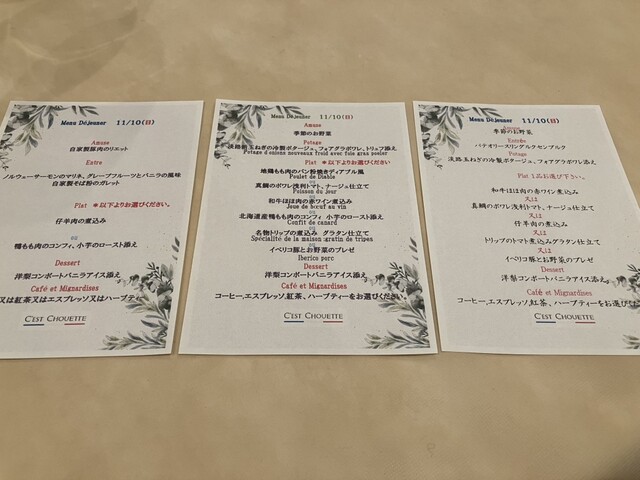 Menu Déjeuner 11/10(日)
Amuse
自家製豚肉のリエット
Entre
ノルウェーサーモンのマリネ、グレープフルーツとバニラの風味
自家製そば粉のガレット
Plat ＊以下よりお選びください。
仔羊肉の煮込み
ou
鴨もも肉のコンフィ、小芋のロースト添え
Dessert
洋梨コンポートバニラアイス添え
Café et Mignardises
又は紅茶又はエスプレッソ又はハーブティー
C'EST CHOUETTE
Menu Déjeuner 11/10(日)
Amuse
季節のお野菜
Potage
淡路新玉ねぎの冷製ポタージュ、フォアグラポワレ、トリュフ添え
Potage d'oignons nouveaux froid avec foie gras poeler
Plat ＊以下よりお選びください
地鶏もも肉のパン粉焼きディアブル風
Poulet de Diable
ou
真鯛のポワレ浅利トマト、ナージュ仕立て
Poisson du jour
ou
和牛ほほ肉の赤ワイン煮込み
Joue de bœuf au vin
ou
北海道産鴨もも肉のコンフィ 小芋のロースト添え
Confit de canard
ou
名物トリップの煮込み グラタン仕立て
Spécialité de la maison gratin de tripes
ou
イベリコ豚とお野菜のブレゼ
Iberico porc
Dessert
洋梨コンポートバニラアイス添え
Café et Mignardises
コーヒー,エスプレッソ,紅茶、ハーブティーをお選びください
C'EST CHOUETTE
Menu Déjeuner 11/10(日)
Amuse
季節のお野菜
Entrée
パテオリースリングアルクセンブルク
Potage
淡路玉ねぎの冷製ポタージュ、フォアグラポワレ添え
Plat 1品お選び下さい。
和牛ほほ肉の赤ワイン煮込み
又は
真鯛のポワレ浅利トマト、ナージュ仕立て
又は
仔羊肉の煮込み
又は
トリップのトマト煮込みグラタン仕立て
又は
イベリコ豚とお野菜のブレゼ
Dessert
洋梨コンポートバニラアイス添え
Café et Mignardises
コーヒー,エスプレッソ,紅茶、ハーブティーをお選び
C'EST CHOUETTE